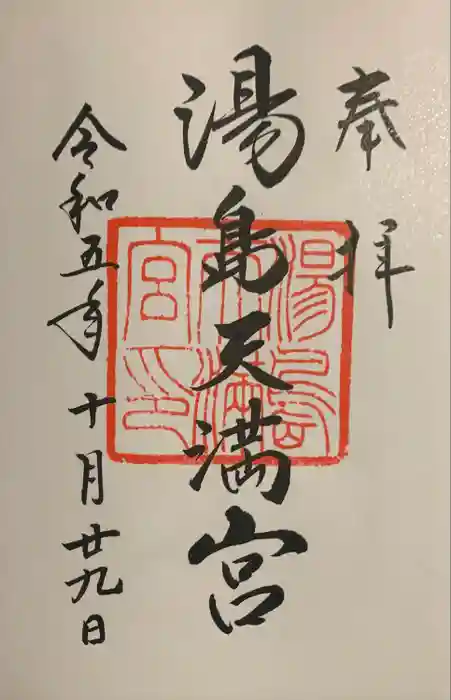 奉拝
湯島天満宮
湯島天満宮印
令和五年十月廿九日